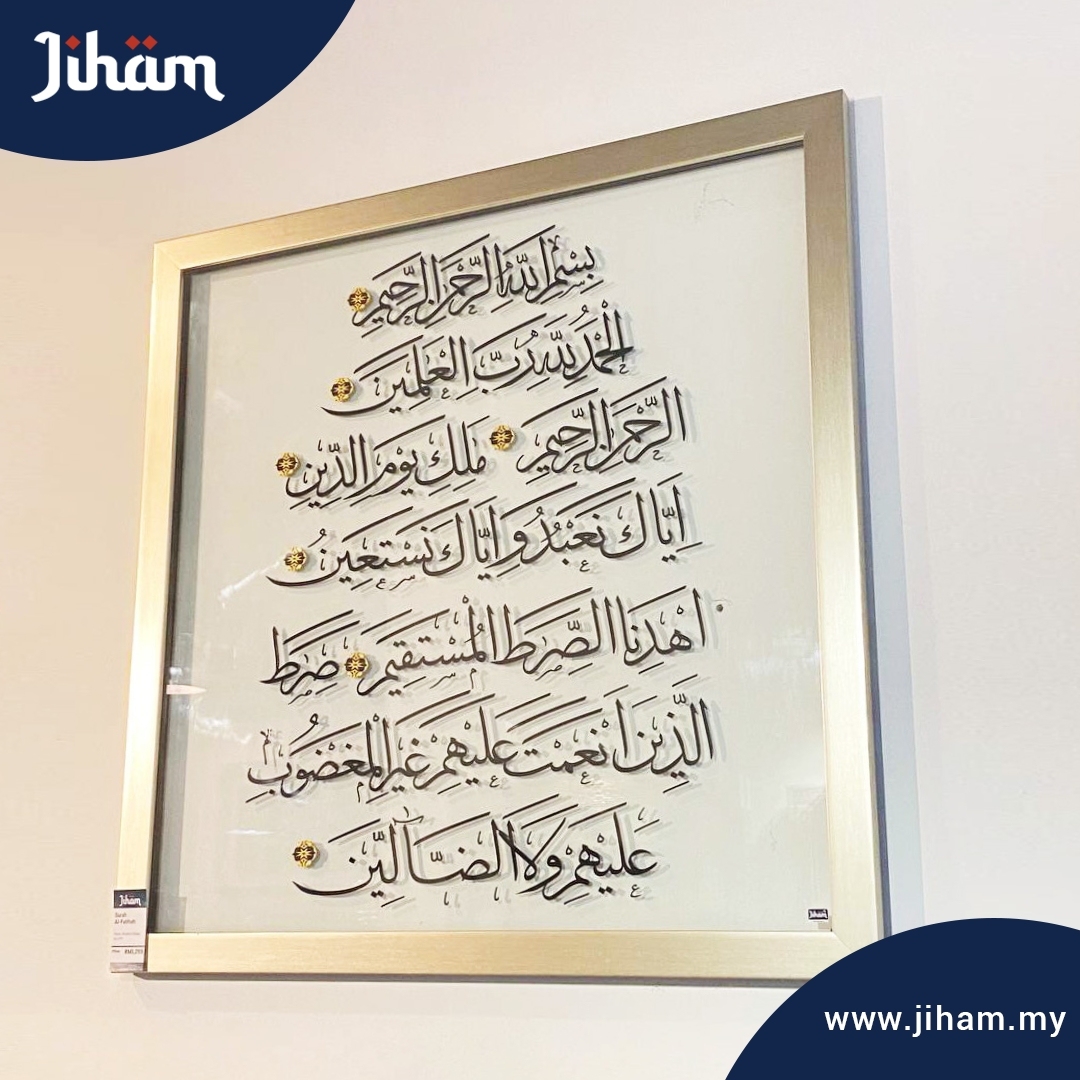 Jihäm
بِسْمِ اللَّهِ الرَّحْمَٰنِ الرَّحِيمِ
الْحَمْدُ لِلَّهِ رَبِّ الْعَٰلَمِينَ
الرَّحْمَٰنِ الرَّحِيمِ مَٰلِكِ يَوْمِ الدِّينِ
إِيَّاكَ نَعْبُدُ وَإِيَّاكَ نَسْتَعِينُ
اهْدِنَا الصِّرَٰطَ الْمُسْتَقِيمَ صِرَٰطَ
الَّذِينَ أَنْعَمْتَ عَلَيْهِمْ غَيْرِ الْمَغْضُوبِ
عَلَيْهِمْ وَلَا الضَّالِّينَ
Jihäm
Surah
Al-Fatihah
Jihäm
www.jiham.my